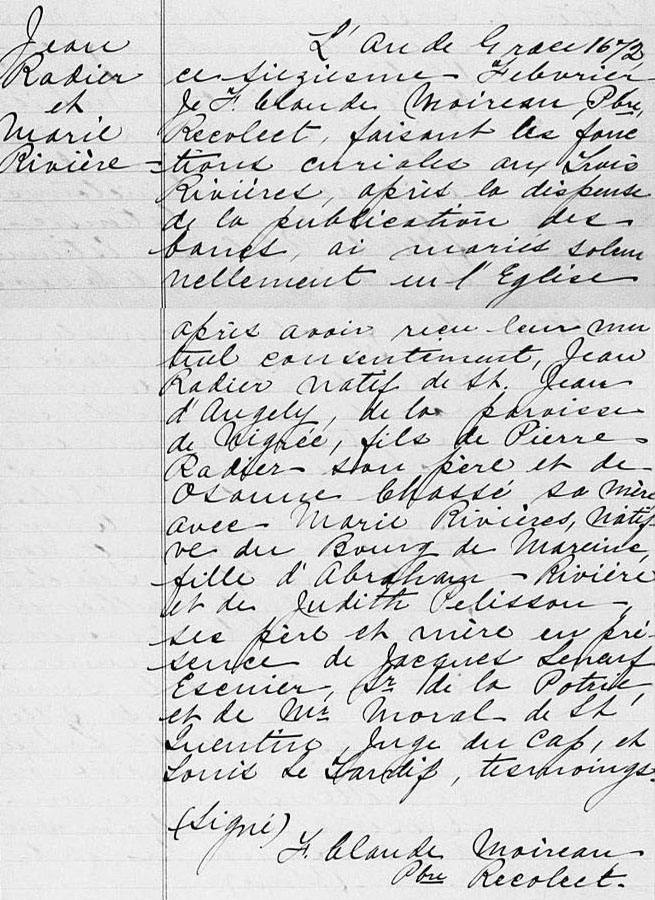 Jean
Radier
et
Marie
Rivière =
L'An de Grace 1672
ce siziesme Febvrier
Je F. Claude Moireau, Pbre,
Recolect, faisant les fonc
tions curiales aux Trois
Rivières, après la dispense
de la publication des
bancs, ai mariés solem
nellement en l'Eglise
après avoir reçu leur mu
tuel consentiment, Jean
Radier natif de St. Jean
d'Angely, de la paroisse
de Vigrée, fils de Pierre
Radier son père et de
Osanne Chassé sa mère
avec Marie Rivières, nati-
ve du Bourg de Mareine,
fille d'Abraham Rivière
et de Judith Pelisson,
ses père et mère en pré-
sence de Jacques Leneuf
Escuier, Sr de la Potrie,
et de Mr Moral de St
Quentin, Juge du Cap, et
Louis Le Tardif, tesmoings.
(Signé)
F. Claude Moireau
Pbre Recolect.